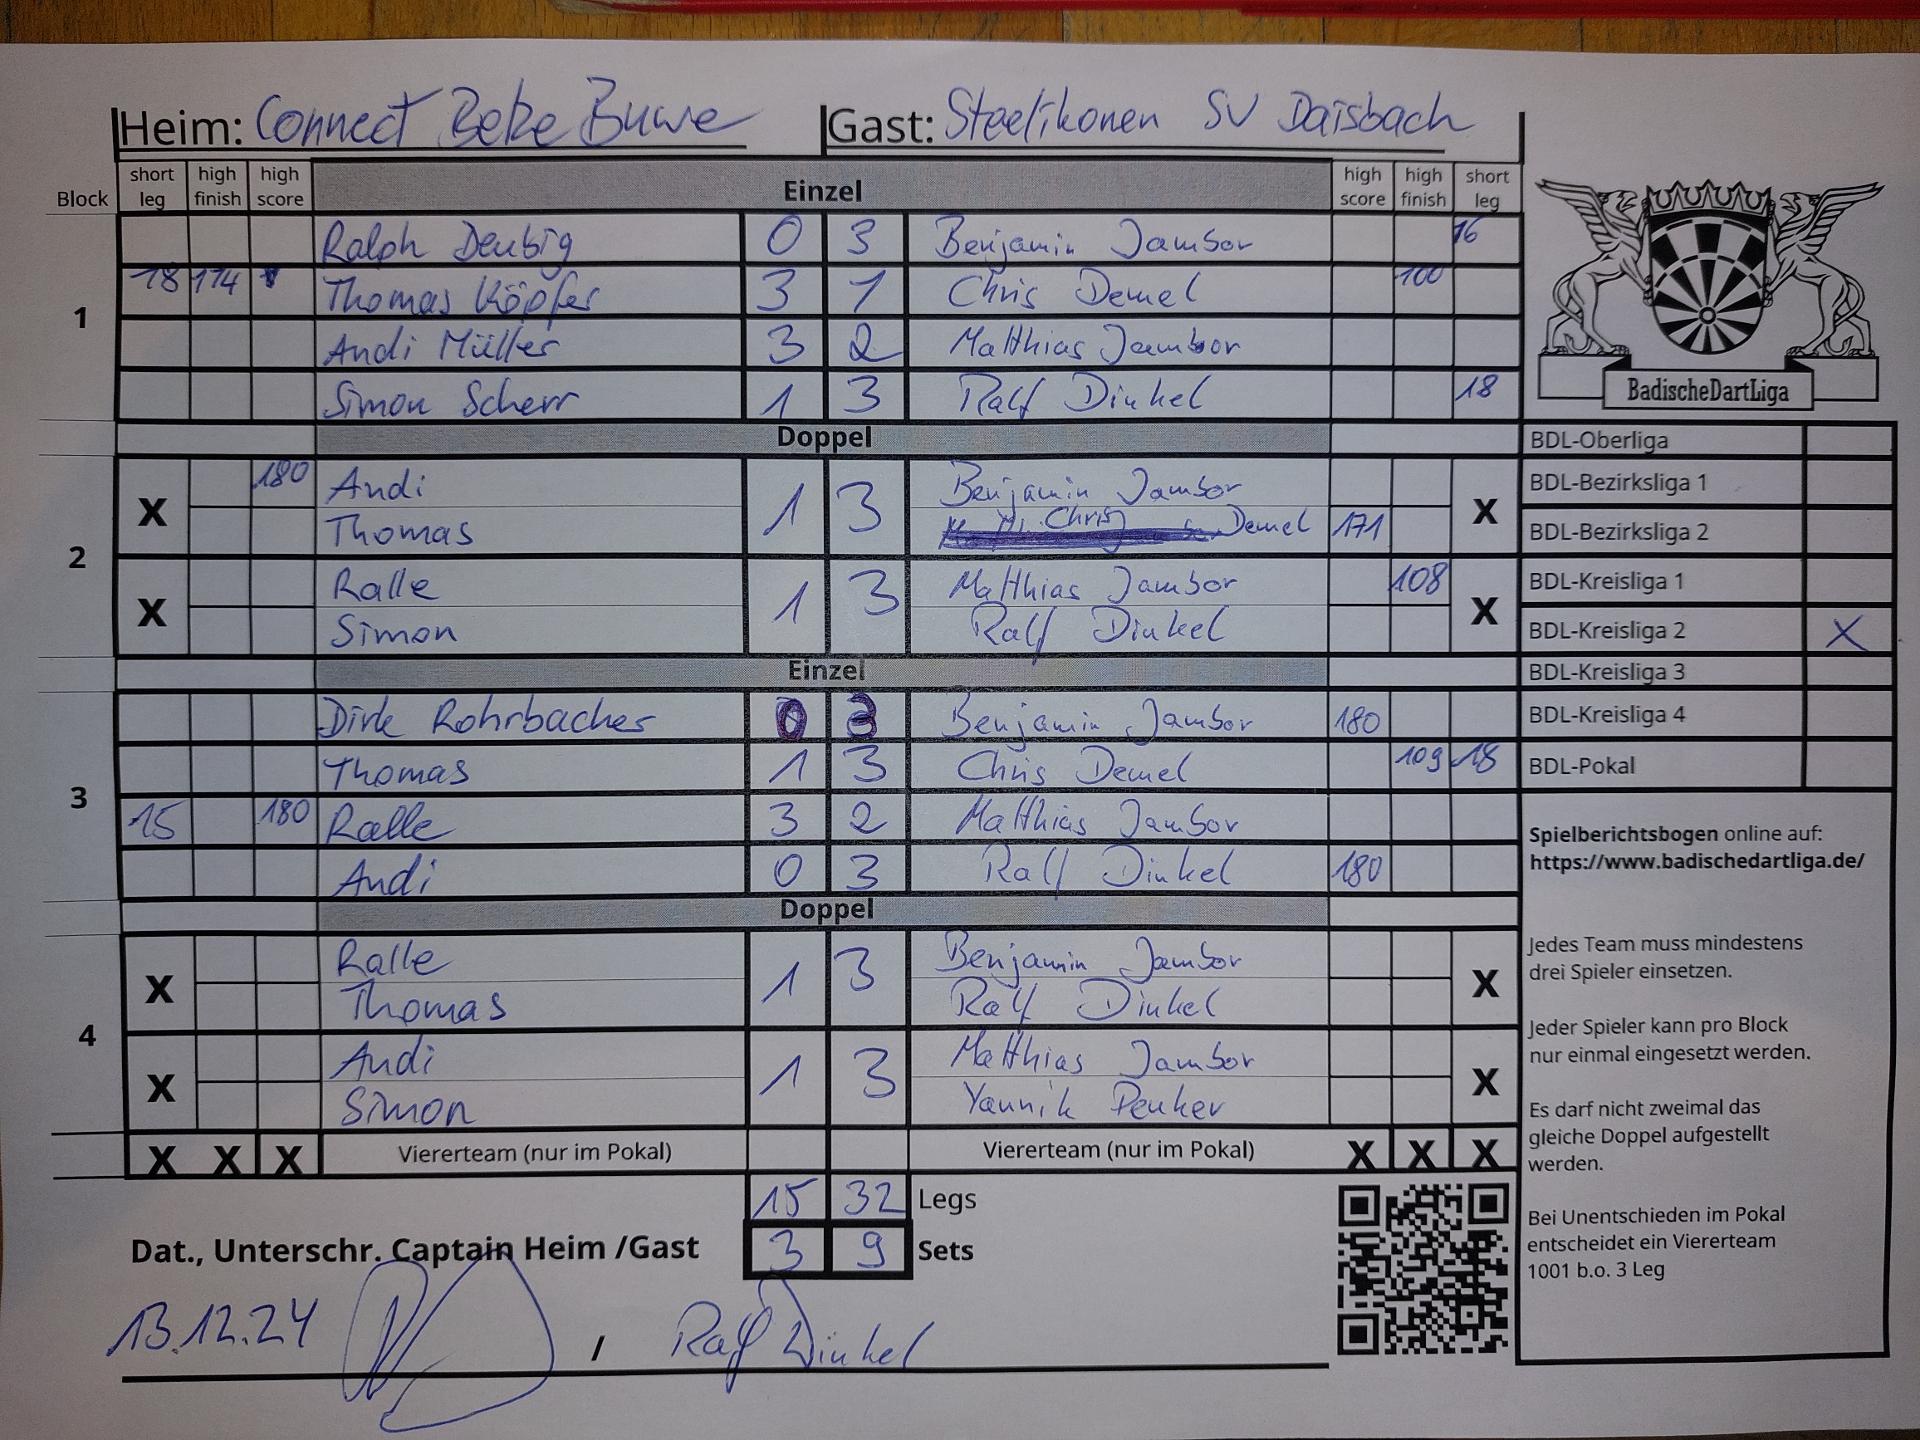 Heim: Connect Betze Buwe Gast: Steelikonen SV Daisbach
Block short leg high finish high score Einzel high score high finish short leg
1
Ralph Deubig 0 3 Benjamin Jambor 16
18 114 Thomas Köpfer 3 1 Chris Demel 100
Andi Müller 3 2 Matthias Jambor
Simon Scherr 1 3 Ralf Dinkel 18
BadischeDartLiga
Doppel
2
X 180 Andi 1 3 Benjamin Jambor X
Thomas Chris Demel 171
X Ralle 1 3 Matthias Jambor 108 X
Simon Ralf Dinkel
Einzel
3
Dirk Rohrbacher 0 3 Benjamin Jambor 180
Thomas 1 3 Chris Demel 109 18
15 180 Ralle 3 2 Matthias Jambor
Andi 0 3 Ralf Dinkel 180
Doppel
4
X Ralle 1 3 Benjamin Jambor X
Thomas Ralf Dinkel
X Andi 1 3 Matthias Jambor X
Simon Yannik Penker
X X X Viererteam (nur im Pokal) Viererteam (nur im Pokal) X X X
15 32 Legs
3 9 Sets
Dat., Unterschr. Captain Heim /Gast
13.12.24 / Ralf Dinkel
BDL-Oberliga
BDL-Bezirksliga 1
BDL-Bezirksliga 2
BDL-Kreisliga 1
BDL-Kreisliga 2 X
BDL-Kreisliga 3
BDL-Kreisliga 4
BDL-Pokal
Spielberichtsbogen online auf:
https://www.badischedartliga.de/
Jedes Team muss mindestens
drei Spieler einsetzen.
Jeder Spieler kann pro Block
nur einmal eingesetzt werden.
Es darf nicht zweimal das
gleiche Doppel aufgestellt
werden.
Bei Unentschieden im Pokal
entscheidet ein Viererteam
1001 b.o. 3 Leg